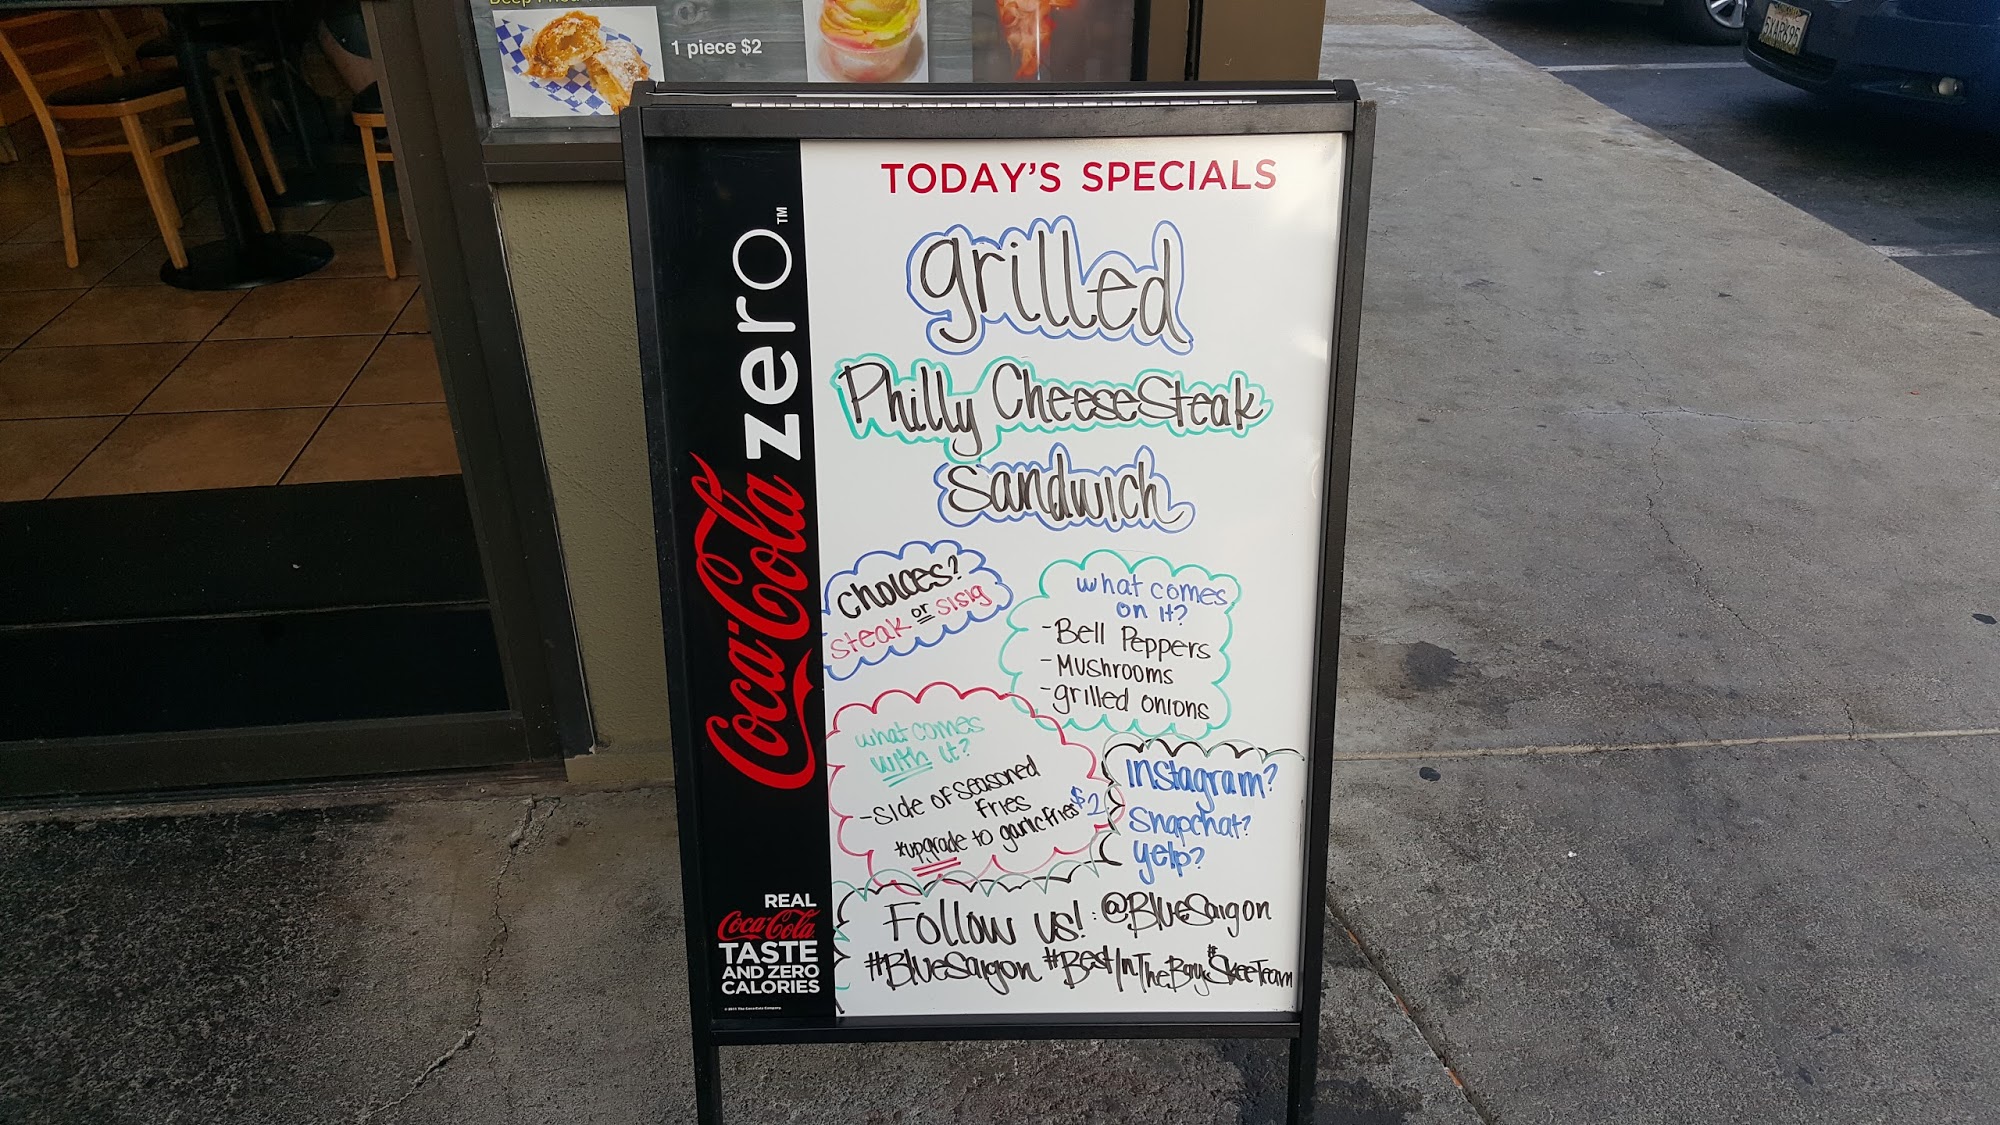 1 piece $2
6YAR695
TODAY'S SPECIALS
grilled
Philly CheeseSteak
Sandwich
Choices?
Steak or sisig
what comes
on it?
- Bell Peppers
- Mushrooms
- grilled onions
what comes
with it?
- side of seasoned
fries
*upgrade to garlic fries $2
Instagram?
Snapchat?
yelp?
Follow us! : @BlueSaigon
#BlueSaigon #BestInTheBay #SkeeTeam
Coca-Cola zero™
REAL
Coca-Cola
TASTE
AND ZERO
CALORIES